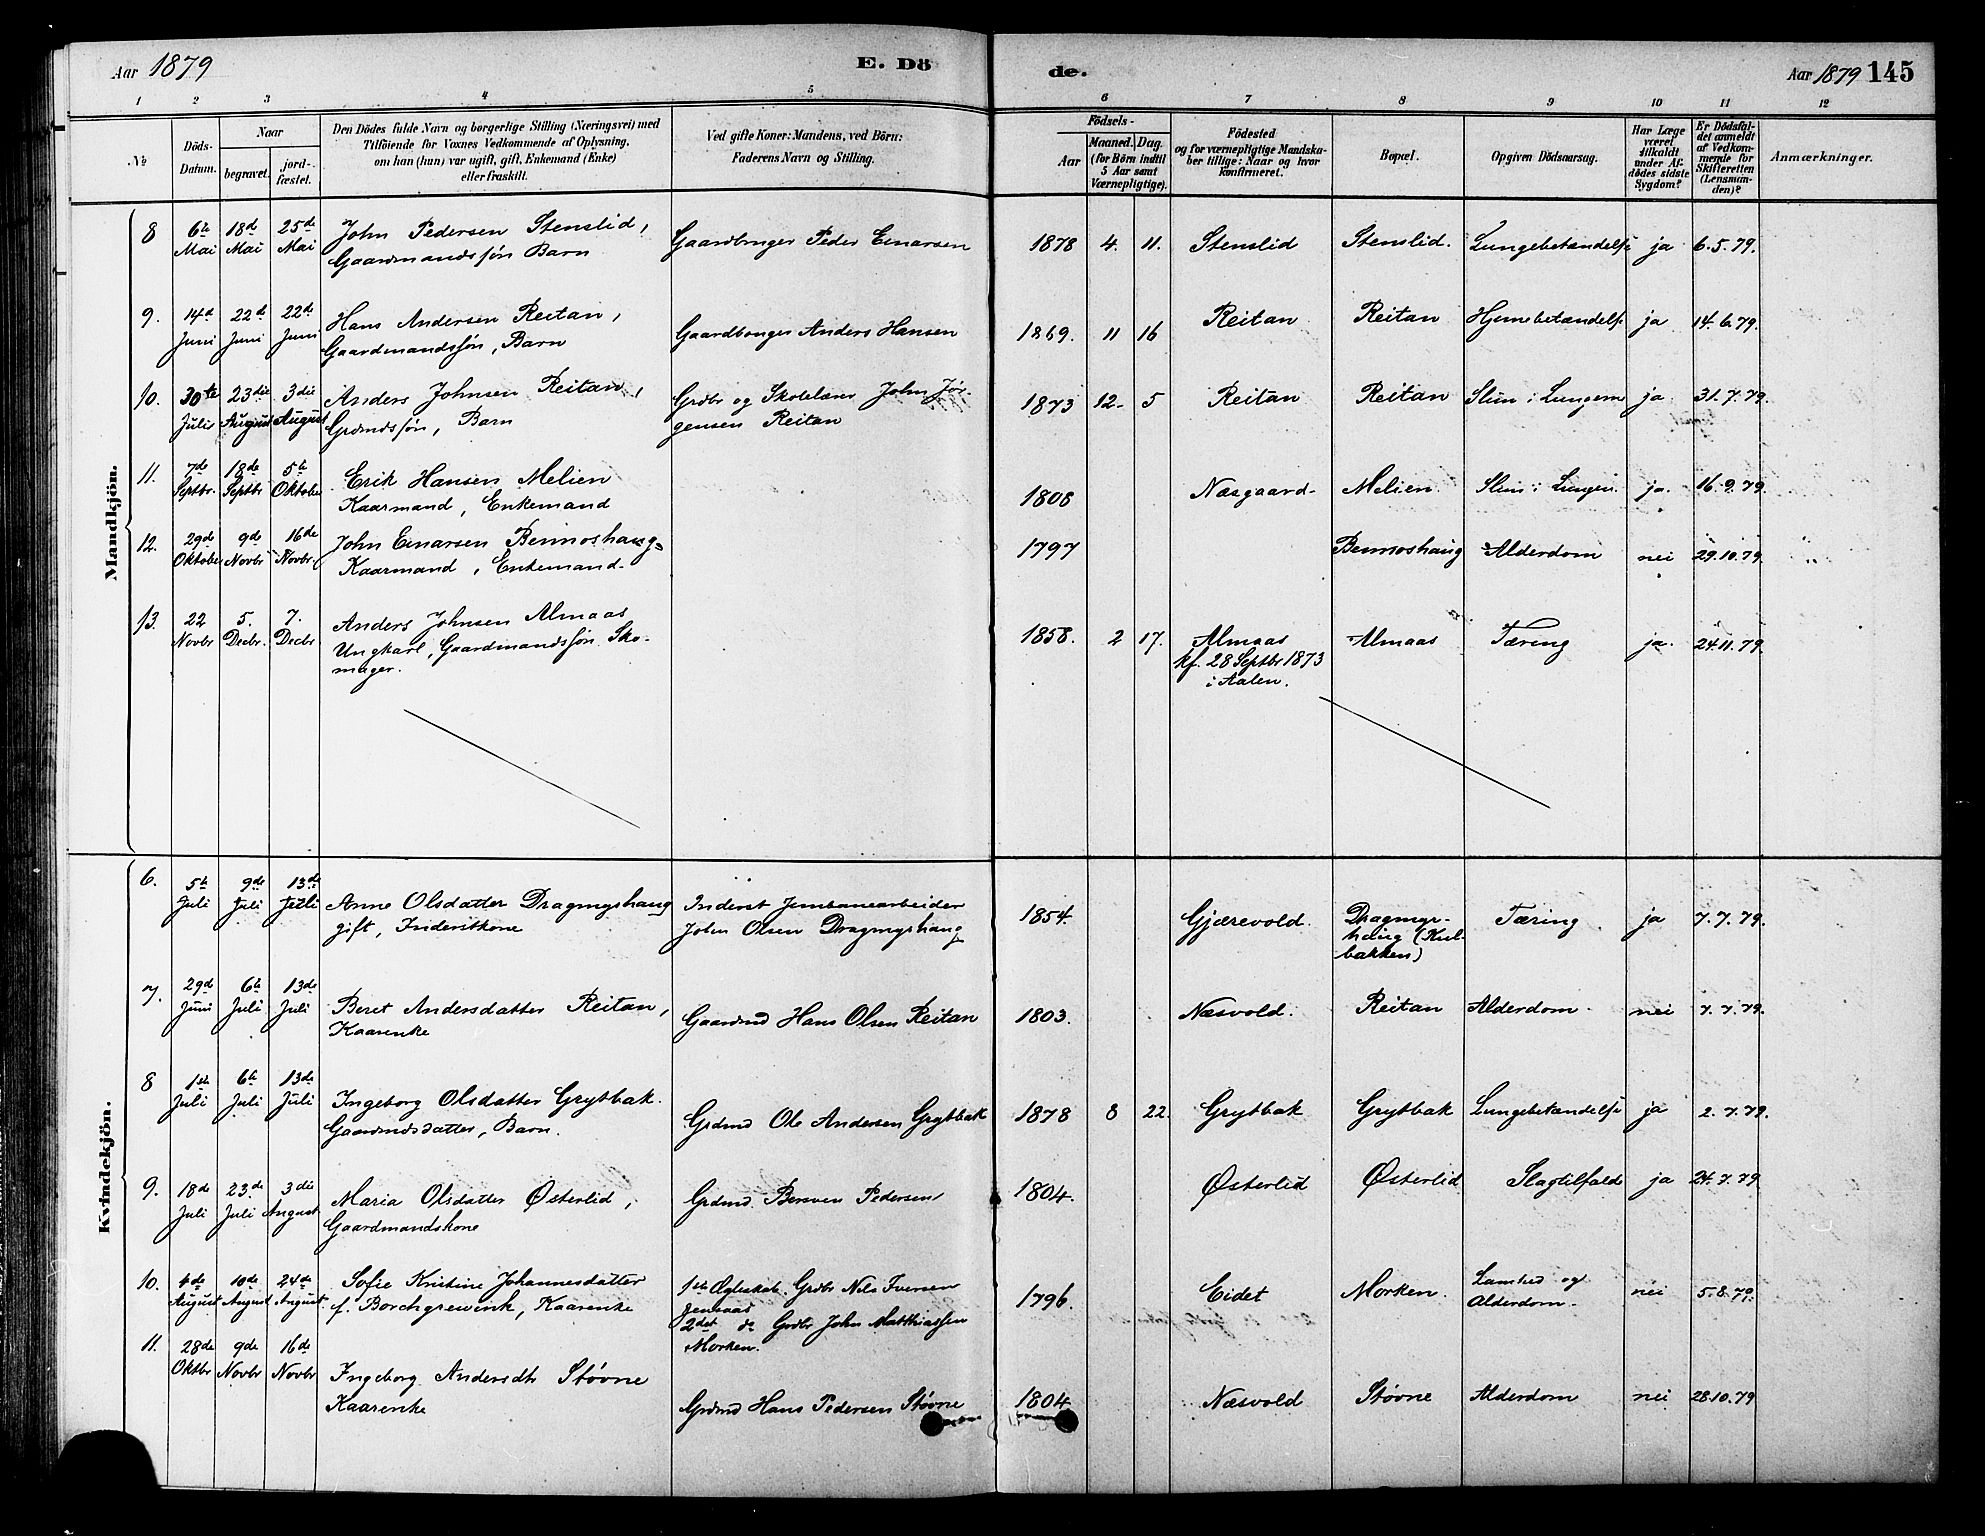 Aar 1879
E. Dö
de.
Aar 1879 145
1 2 3 4 5 6 7 8 9 10 11 12
№
Döds-
Datum.
Naar
begravet.
jord-
fæstet.
Den Dödes fulde Navn og borgerlige Stilling (Næringsvei) med
Tilföiende for Voxnes Vedkommende af Oplysning,
om han (hun) var ugift, gift, Enkemand (Enke)
eller fraskilt.
Ved gifte Koner: Mandens, ved Börn:
Faderens Navn og Stilling.
Födsels-
Aar
Maaned. Dag.
(for Börn indtil
5 Aar samt
Værnepligtige).
Födested
og for værnepligtige Mandska-
ber tillige: Naar og hvor
konfirmeret.
Bopæl.
Opgiven Dödsaarsag.
Har Læge
været
tilkaldt
under Af-
dödes sidste
Sygdom?
Er Dödsfal-
det anmeldt
af Vedkom-
mende for
Skifteretten
(Lensman-
den)?
Anmærkninger.
Mandkjön.
8 6te Mai 18de Mai 25de Mai John Pedersen Stenslid, Gaardbruger Peder Einarsen 1878 4. 11. Stenslid Stenslid. Lungebetændelse ja 6.5.79.
Gaardmandssøn Barn
9. 14d Juni 22d Juni 22de Juni Hans Andersen Reitan, Gaardbruger Anders Hansen 1869. 11 16 Reitan Reitan Hjernebetændelse ja 14.6.79.
Gaardmandssøn, Barn
10. 30te Juli 23die August 3die August Anders Johnsen Reitan, Grdbr og Skolelærer John Jør- 1873 12. 5 Reitan Reitan Sliim i Lungerne ja 31.7.79.
Grdmdssøn, Barn gensen Reitan
11. 7de Septbr. 18de Septbr 5te Oktober Erik Hansen Melien 1808 Næsgaard Melien Sliim i Lungen ja. 16.9.79.
Kaarmand, Enkemand
12. 29d Oktober 9de Novbr 16de Novbr John Einarsen Bennoshaug 1797 Bennoshaug Alderdom nei 29.10.79.
Kaarmand, Enkemand
13. 22 Novbr 5. Decbr. 7. Decbr Anders Johnsen Almaas 1858. 2 17. Almaas Almaas Tæring ja. 24.11.79.
Ungkarl, Gaardmandssøn Sko- kf. 28 Septbr 1873
mager. i Aalen.
Kvindekjön.
6. 5te Juli 9de Juli 13de Juli Anne Olsdatter Dragmyrhaug Inderst Jernbanearbeider 1854. Gjærevold. Dragmyr- Tæring ja 7.7.79.
gift, Inderstkone John Olsen Dragmyrhaug haug (Kul-
bakken)
7. 29d Juni 6te Juli 13de Juli Beret Andersdatter Reitan, Gaardmd Hans Olsen Reitan 1803. Næsvold. Reitan Alderdom nei 7.7.79.
Kaarenke
8 1ste Juli 6te Juli 13de Juli Ingeborg Olsdatter Grytbak. Grdmd Ole Andersen Grytbak 1878 8 22. Grytbak Grytbak Lungebetændelse ja 2.7.79.
Gaardmdsdatter, Barn.
9. 18de Juli 23de Juli 3die August Maria Olsdatter Østerlid, Grdmd. Bersven Pedersen 1804. Østerlid Østerlid Slagtilfælde ja 24.7.79.
Gaardmandskone
10. 4de August 10de August 24de August Sofie Kristine Johannesdatter 1ste Ægteskab. Grdbr Nils Iversen 1796. Eidet Morken. Lamhed og nei 5.8.79.
f. Borchgrewink, Kaarenke Jensaas Alderdom.
2det do Grdbr John Matthiassen
Morken.
11. 28de Oktbr 9de Novbr 16de Novbr Ingeborg Andersdtr Støvne Grdmd Hans Pedersen Støvne 1804 Næsvold Støvne Alderdom nei 28.10.79
Kaarenke